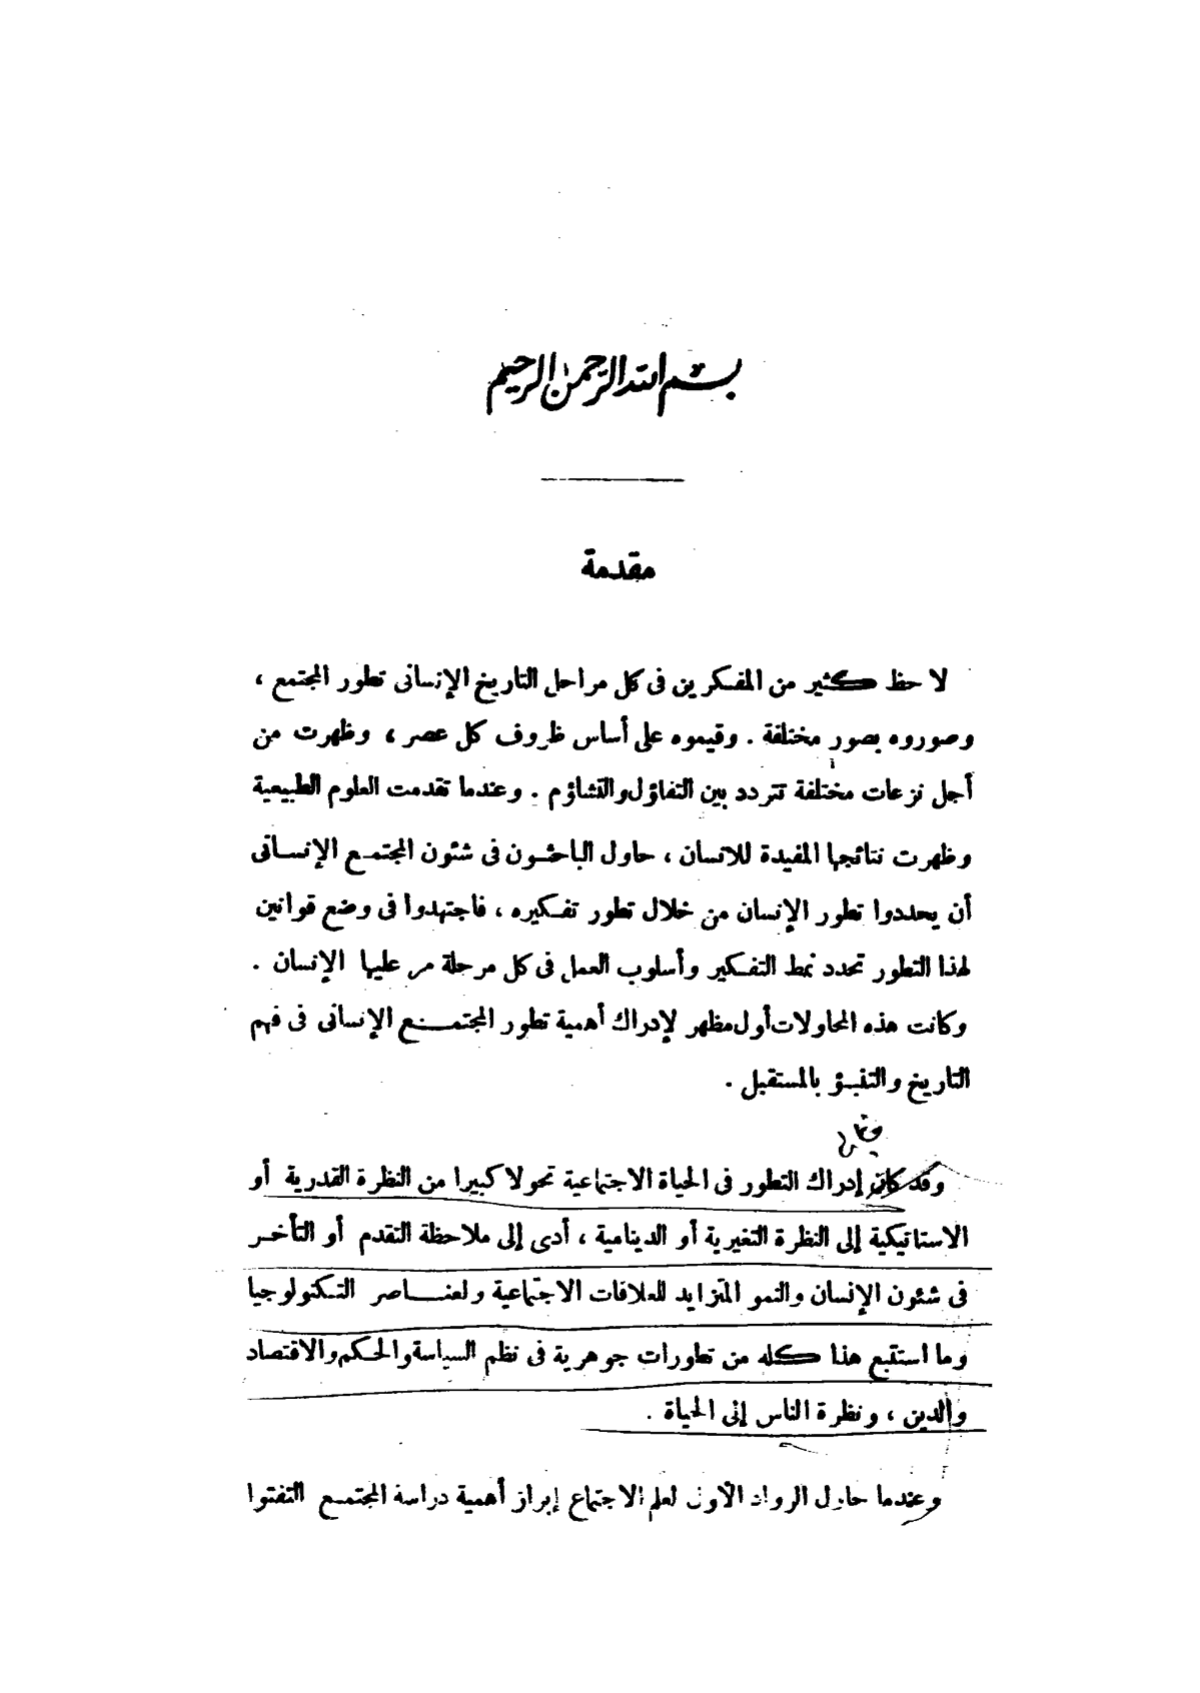 بسم الله الرحمن الرحيم
مقدمة
لاحظ كثير من المفكرين فى كل مراحل التاريخ الإنسانى تطور المجتمع ،
وصوروه بصور مختلفة . وقيموه على أساس ظروف كل عصر ، وظهرت من
أجل نزعات مختلفة تتردد بين التفاؤل والتشاؤم . وعندما تقدمت العلوم الطبيعية
وظهرت نتائجها المفيدة للانسان ، حاول الباحثون فى شئون المجتمع الإنسانى
أن يحددوا تطور الإنسان من خلال تطور تفكيره ، فاجتهدوا فى وضع قوانين
لهذا التطور تحدد نمط التفكير وأسلوب العمل فى كل مرحلة مر عليها الإنسان .
وكانت هذه المحاولات أول مظهر لإدراك أهمية تطور المجتمع الإنسانى فى فهم
التاريخ والتنبؤ بالمستقبل .
وقد كان إدراك التطور فى الحياة الاجتماعية تحولا كبيرا من النظرة القدرية أو
الاستاتيكية إلى النظرة التغيرية أو الدينامية ، أدى إلى ملاحظة التقدم أو التأخر
فى شئون الإنسان والنمو المتزايد للعلاقات الاجتماعية ولعناصر التكنولوجيا
وما استتبع هذا كله من تطورات جوهرية فى نظم السياسة والحكم والاقتصاد
والدين ، ونظرة الناس إلى الحياة .
وعندما حاول الرواد الأول لعلم الاجتماع إبراز أهمية دراسة المجتمع التفتوا